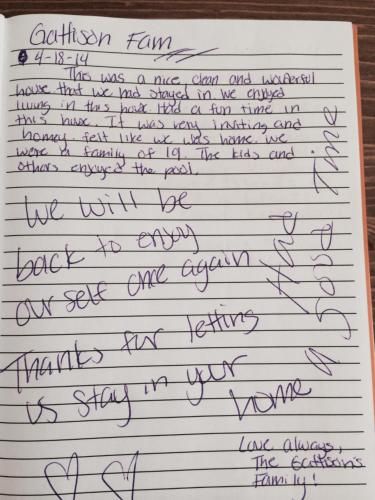 Gattison Fam
4-18-14
This was a nice clean and wonderful
house that we had stayed in we enjoyed
living in this house. Had a fun time in
this house. It was very inviting and
homey. felt like we was home. We
were a family of 19. The kids and
others enjoyed the pool.
We will be
back to enjoy
our self once again
Thanks for letting
us stay in your
home
Had
a good
Time
Love always,
The Gattison's
Family!